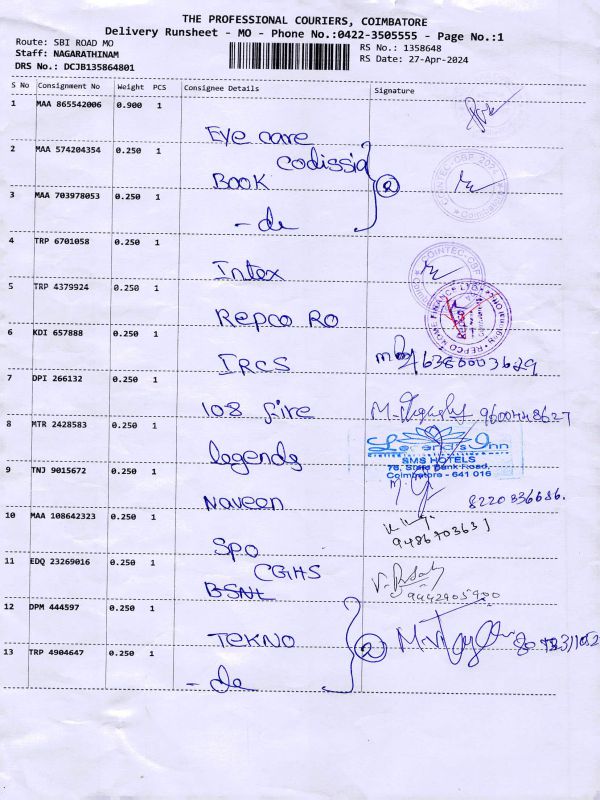 THE PROFESSIONAL COURIERS, COIMBATORE
Delivery Runsheet - MO - Phone No.:0422-3505555 - Page No.:1
Route: SBI ROAD MO
Staff: NAGARATHINAM
DRS No.: DCJB135864801
RS No.: 1358648
RS Date: 27-Apr-2024
S No Consignment No Weight PCS Consignee Details Signature
1 MAA 865542006 0.900 1 Eye care
codissia
2 MAA 574204354 0.250 1 BOOK
3 MAA 703978053 0.250 1 - do
2
4 TRP 6701058 0.250 1 Intex
5 TRP 4379924 0.250 1 Repco RO
REPCO HOME FINANCE LTD
6 KDI 657888 0.250 1 IRCS 6380003629
7 DPI 266132 0.250 1 108 fire 9600448627
8 MTR 2428583 0.250 1 legends
Legend's Inn
SMS HOTELS
76, State Bank Road,
Coimbatore - 641 018
9 TNJ 9015672 0.250 1 Naveen 8220336686.
10 MAA 108642323 0.250 1 SPO
11 EDQ 23269016 0.250 1 CGHS
BSNL
9442905900
12 DPM 444597 0.250 1 TEKNO
13 TRP 4904647 0.250 1 - do
2